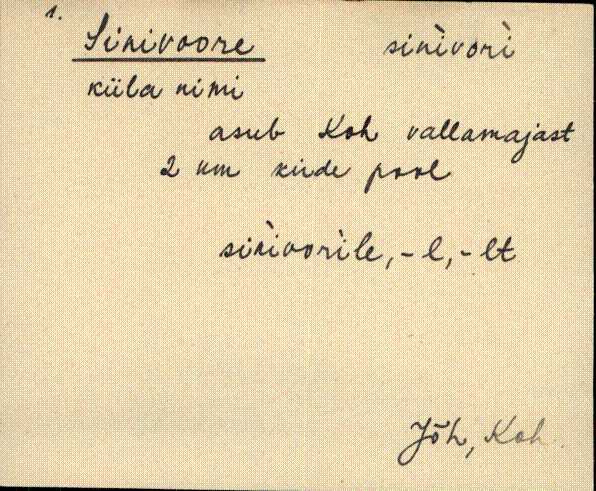 1.
Sinivoore siǹivor̀i
küla nimi
asub Koh vallamajast
2 km kirde pool
siǹivor̀ile, -l, -lt
Jõh, Koh.